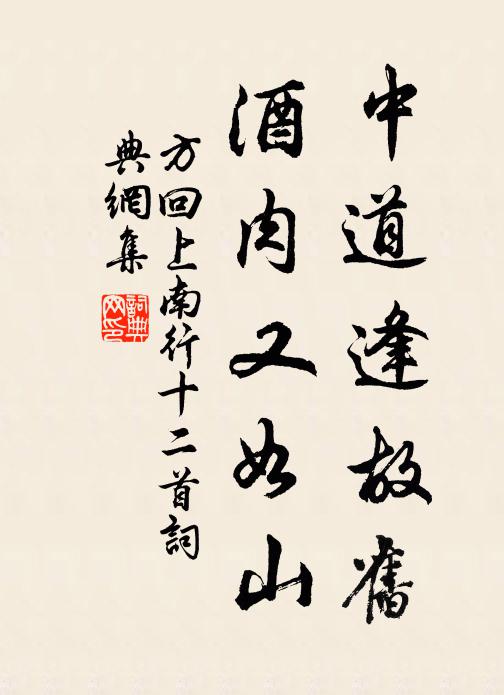 中道逢故舊
酒肉又如山
方回上南行十二首詞
典網集
詞典網印